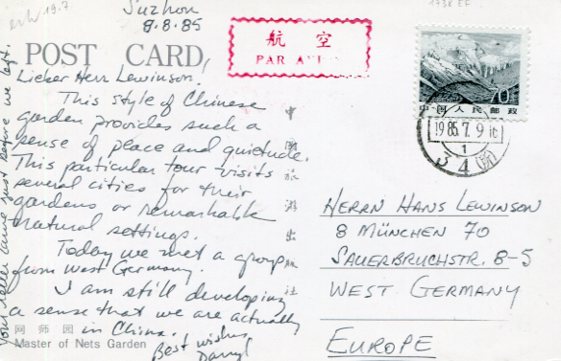 erh 19.7
Suzhou
8.8.85
1738 EF
POST CARD
航空
PAR AVION
Lieber Herr Lewinson:
This style of Chinese
garden provides such a
sense of peace and quietude.
This particular tour visits
several cities for their
gardens or remarkable
natural settings.
Today we met a group
from West Germany.
I am still developing
a sense that we are actually
in China.
Best wishes,
Darryl
Your letter came just before we left.
网师园
Master of Nets Garden
中国旅游出版社
70
中国人民邮政
1985.7.9.16
1
34
HERRN HANS LEWINSON
8 MÜNCHEN 70
SAUERBRUCHSTR. 8-5
WEST GERMANY
EUROPE